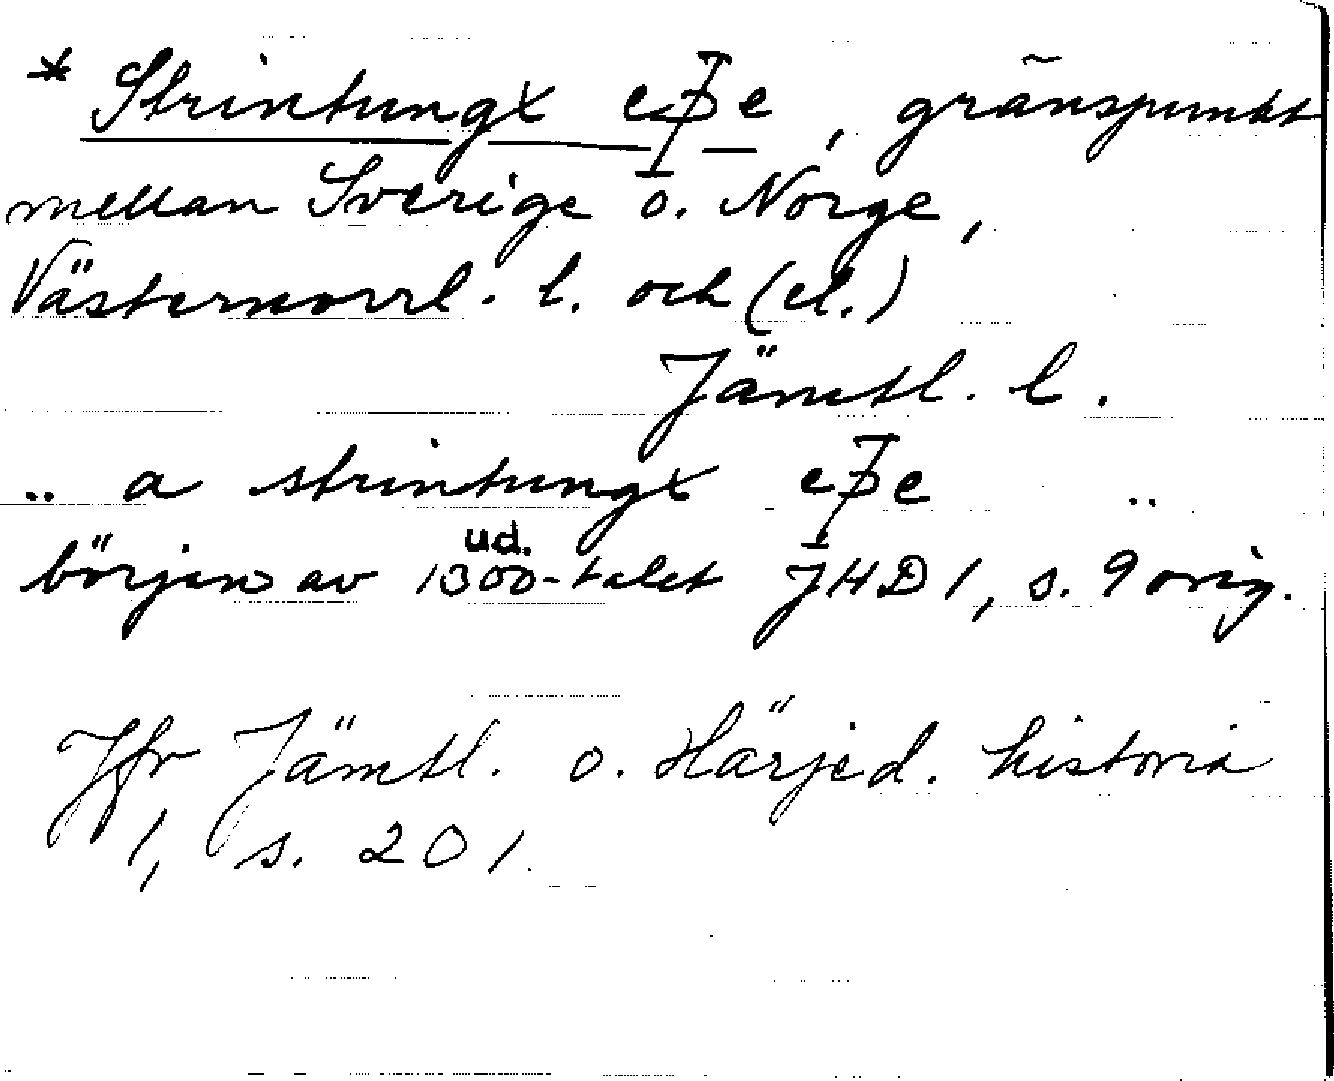 * Strintungx eþe, gränspunkt
mellan Sverige o. Norge,
Västernorrl. l. och (el.)
Jämtl. l.
.. a strintungx eþe ..
ud.
början av 1300-talet JHD 1, s. 9 orig.
Jfr Jämtl. o. Härjed. historia
1, s. 201.